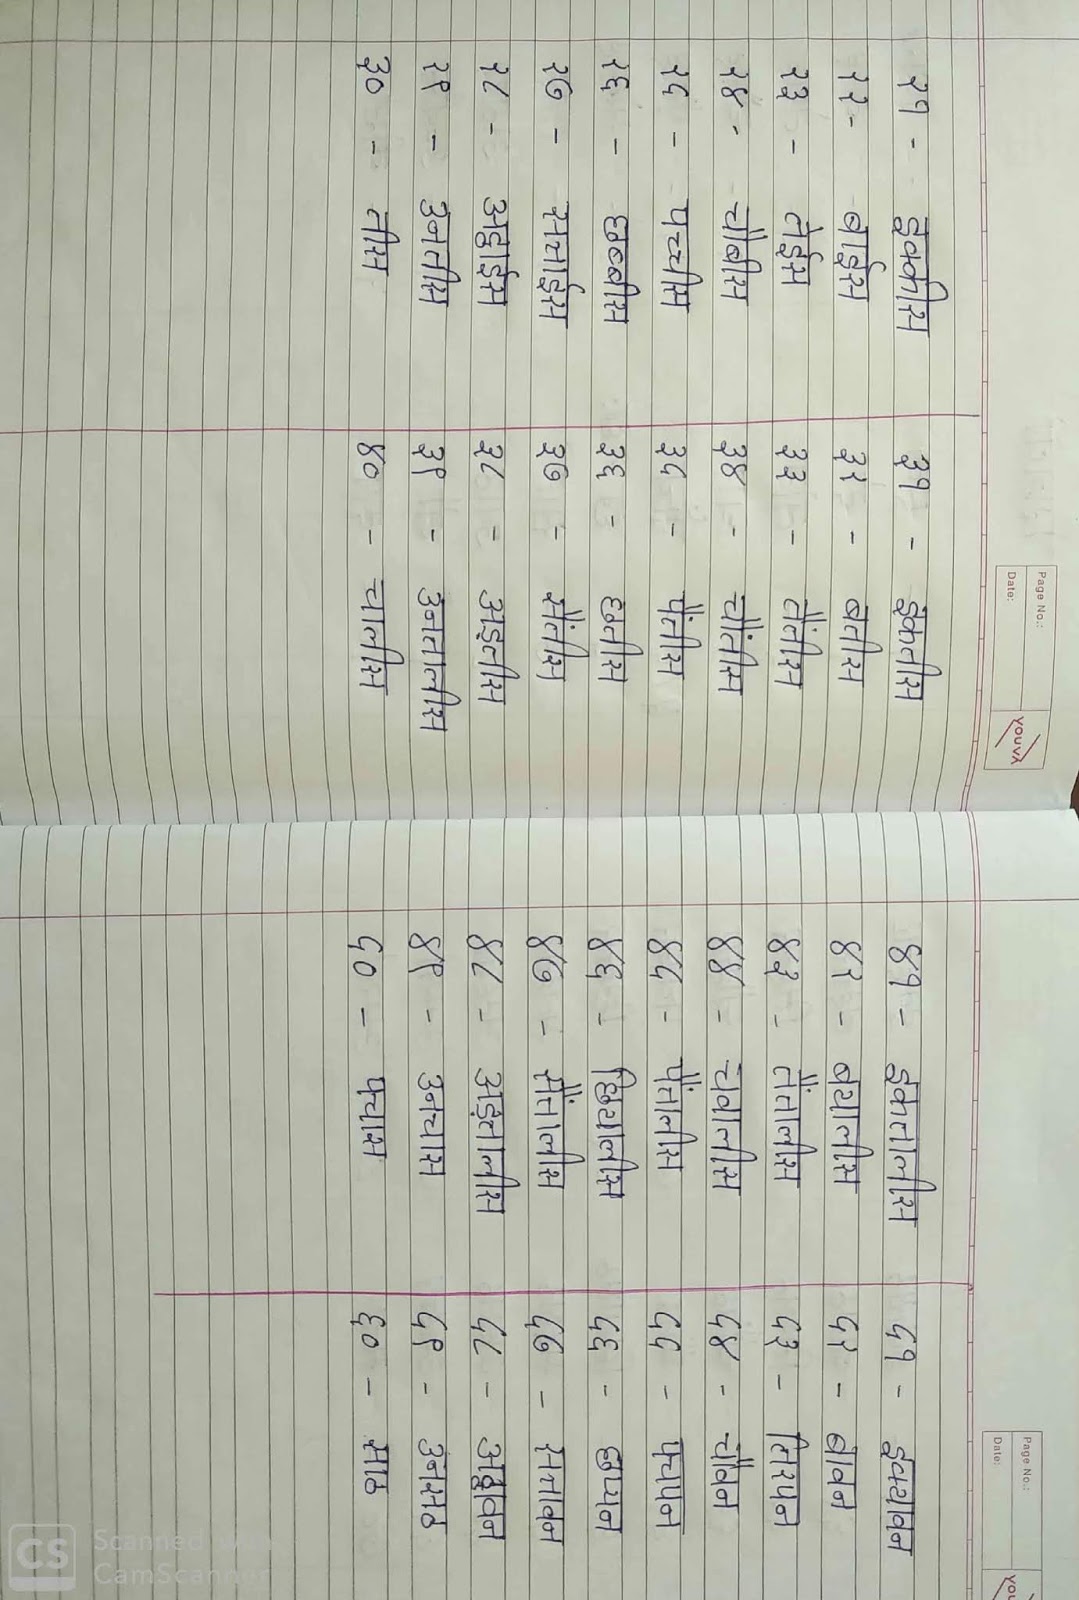 Page No.:
Date:
YOUVA
२१ - इक्कीस
२२ - बाईस
२३ - तेईस
२४ - चौबीस
२५ - पच्चीस
२६ - छब्बीस
२७ - सत्ताईस
२८ - अट्ठाईस
२९ - उनतीस
३० - तीस
३१ - इकतीस
३२ - बतीस
३३ - तैंतीस
३४ - चौंतीस
३५ - पैंतीस
३६ - छतीस
३७ - सैंतीस
३८ - अड़तीस
३९ - उनतालीस
४० - चालीस
Page No.:
Date:
YOU
४१ - इकतालीस
४२ - बयालीस
४३ - तैंतालीस
४४ - चवालीस
४५ - पैंतालीस
४६ - छियालीस
४७ - सैंतालीस
४८ - अड़तालीस
४९ - उनचास
५० - पचास
५१ - इक्यावन
५२ - बावन
५३ - तिरपन
५४ - चौवन
५५ - पचपन
५६ - छप्पन
५७ - सतावन
५८ - अट्ठावन
५९ - उनसठ
६० - साठ
CS Scanned with
CamScanner